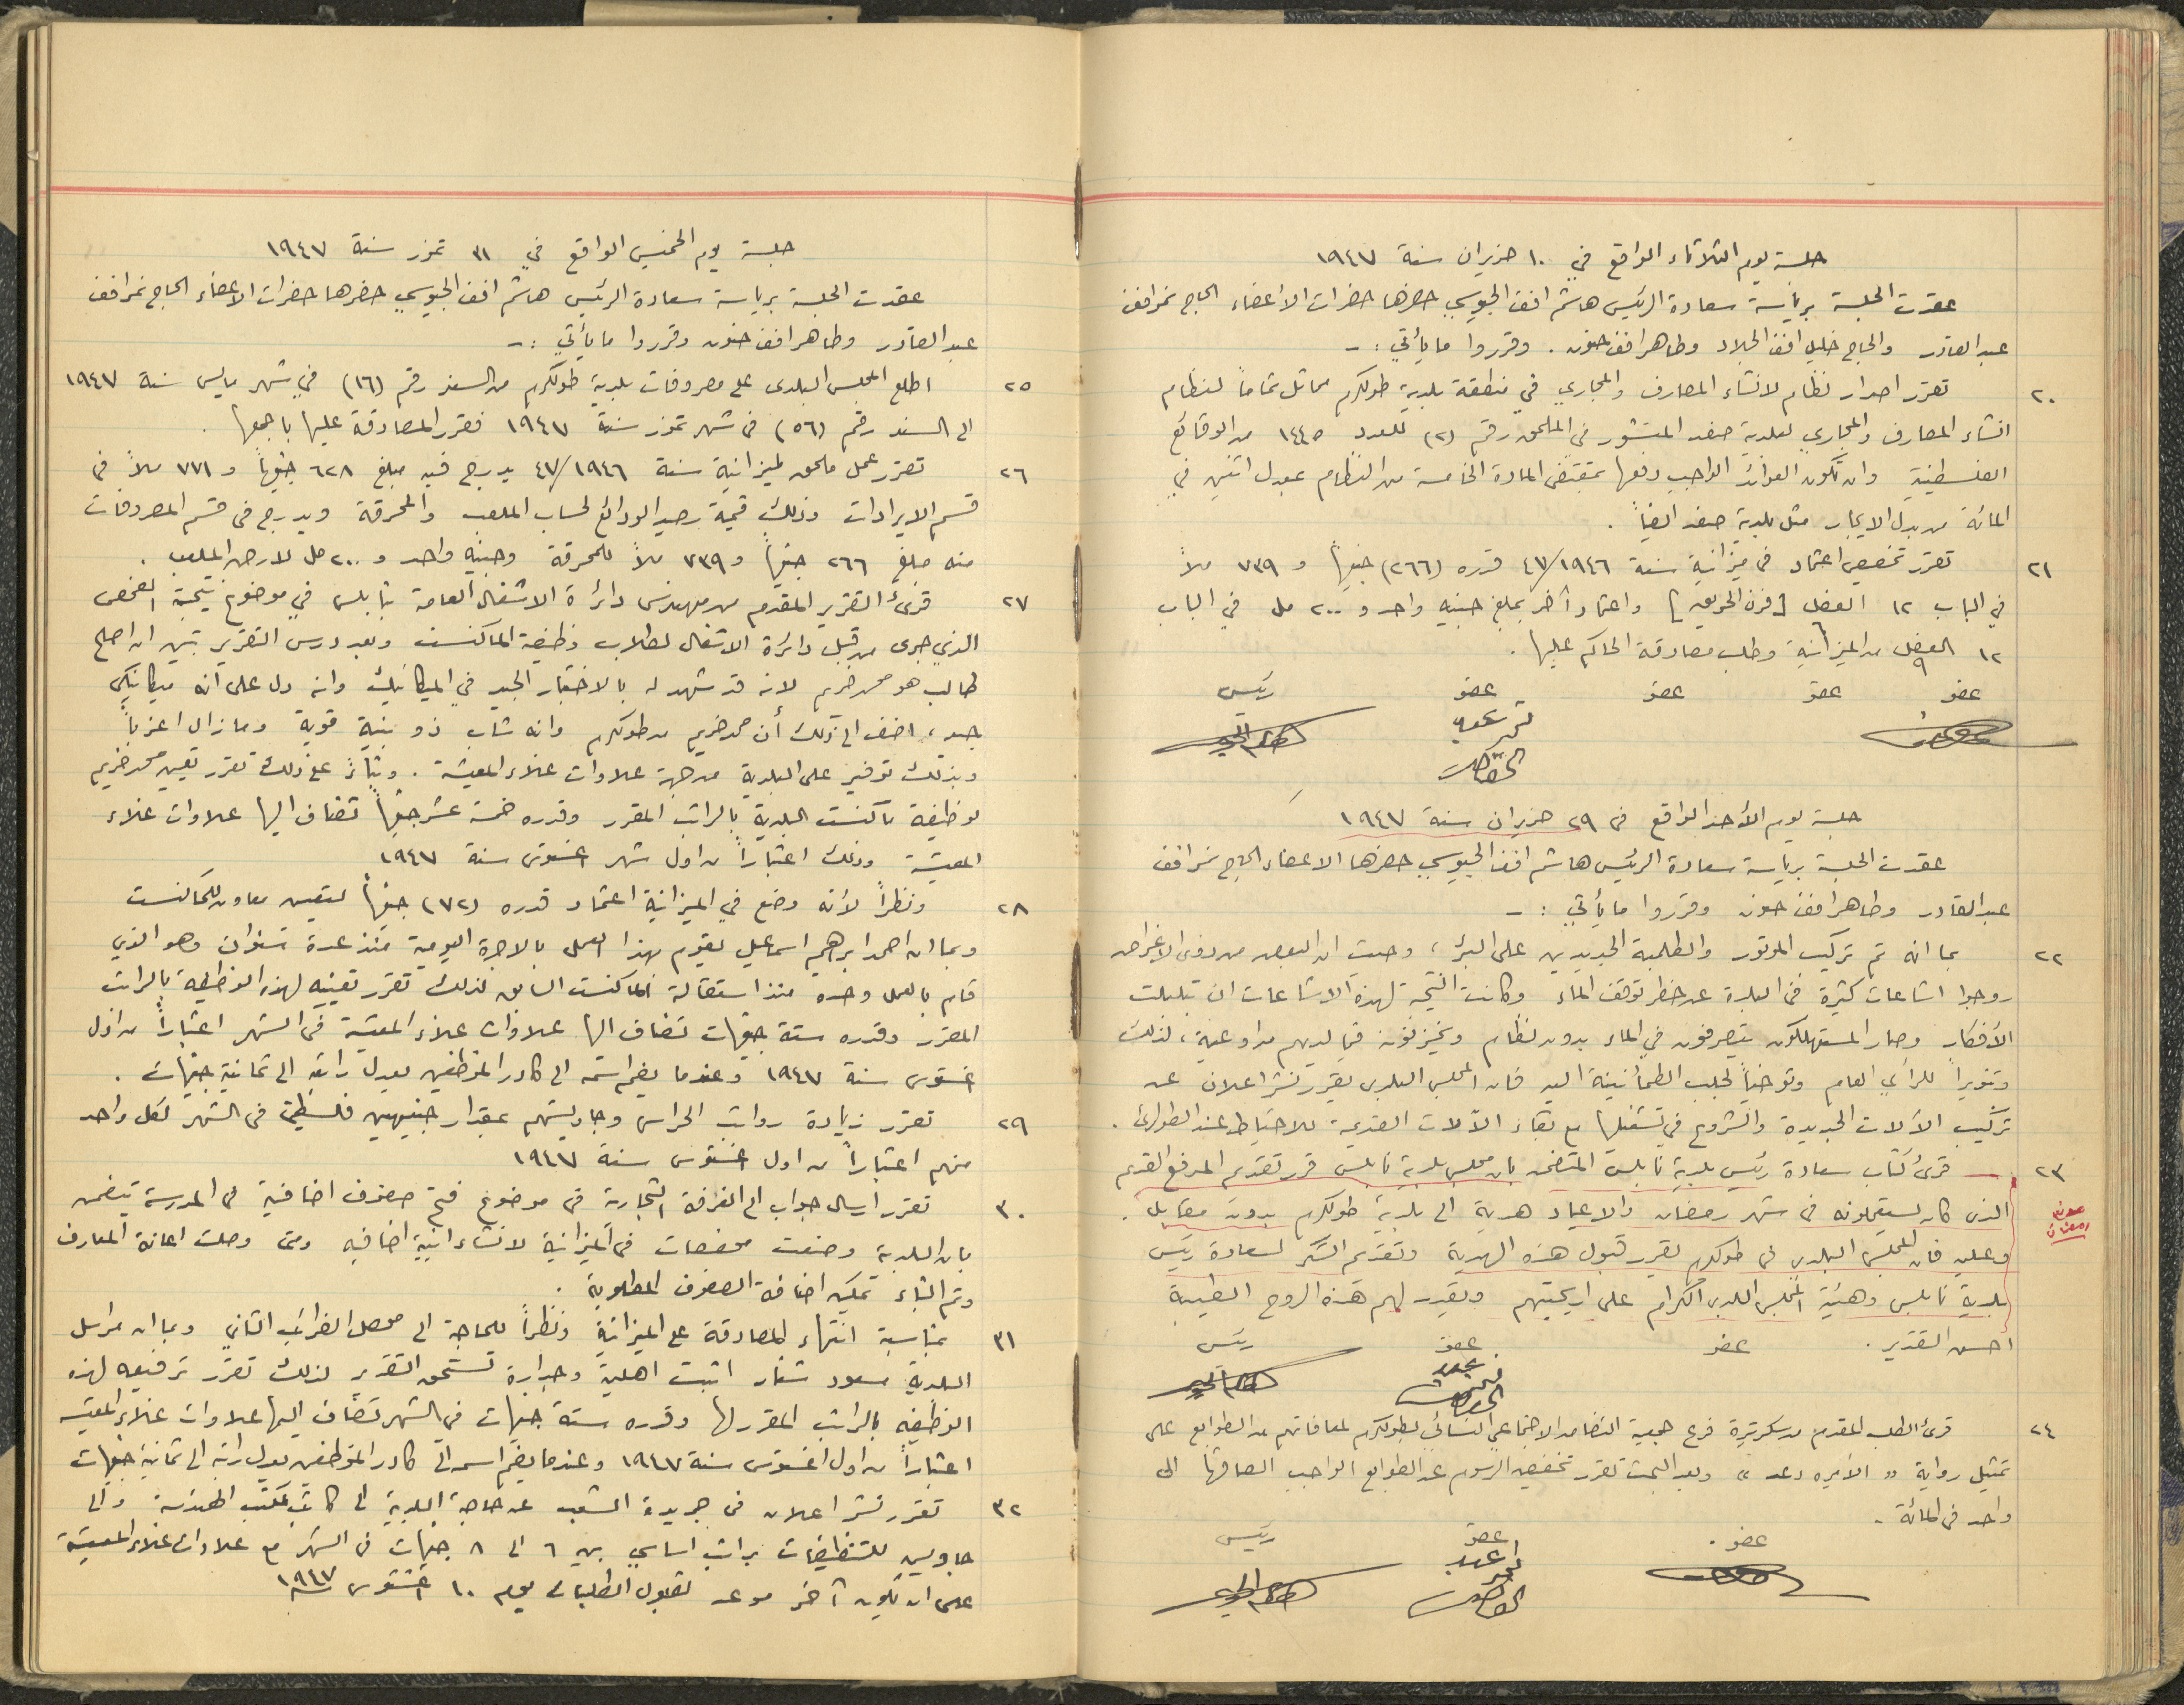 جلسة يوم الثلاثاء الواقع في ١٠ حزيران سنة ١٩٤٧
عقدت الجلسة برئاسة سعادة الرئيس هاشم افند الجيوسي حضرها حضرات الأعضاء الحاج نمر افند
عبد القادر والحاج خليل افند الجلاد وطاهر افند حنون . وقرروا ما يأتي : -
٢٠ تقرر اصدار نظام لانشاء المصارف والمجاري في منطقة بلدية طولكرم مماثل تماماً لنظام
انشاء المصارف والمجاري لبلدية صفد المنشور في الملحق رقم (٢) للعدد ١٤٤٥ من الوقائع
الفلسطينية وان تكون العوائد الواجب دفعها بمقتضى المادة الخامسة من النظام بمعدل اثنين في
المائة من بدل الايجار مثل بلدية صفد ايضاً .
٢١ تقرر تخصيص اعتماد في ميزانية سنة ٤٧/١٩٤٦ قدره (٢٦٦) جنيهاً و ٧٣٩ ملاً
في الباب ١٢ الفصل [فرن الحريق] واعتماد آخر بمبلغ جنيه واحد و ٢٠٠ مل في الباب
١٢ الفصل ٩ من الميزانية وطلب مصادقة الحاكم عليها .
عضو عضو عضو عضو رئيس
جلسة يوم الأحد الواقع في ٢٩ حزيران سنة ١٩٤٧
عقدت الجلسة برئاسة سعادة الرئيس هاشم افند الجيوسي حضرها الاعضاء الحاج نمر افند
عبد القادر وطاهر افند حنون وقرروا ما يأتي : -
٢٢ بما انه تم تركيب الموتور والطلمبة الجديدين على البئر ، وحيث ان البعض من ذوى الاغراض
روجوا اشاعات كثيرة في البلدة عن خطر توقف الماء وكانت النتيجة لهذه الاشاعات ان تبلبلت
الأفكار وصار المستهلكون يتصرفون في الماء بدون نظام ويخزنونه فيما لديهم من اوعية ، لذلك
وتنويراً للرأي العام وتوخياً لجلب الطمأنينة اليه فان المجلس البلدى يقرر نشر اعلان عن
تركيب الآلات الجديدة والشروع في تشغيلها مع بقاء الآلات القديمة للاحتياط عند الطوارئ .
٢٣ - قرئ كتاب سعادة رئيس بلدية نابلس المتضمن بان مجلس بلدية نابلس قرر تقديم المدفع القديم
الذى كان يستعملونه في شهر رمضان والاعياد هدية الى بلدية طولكرم بدون مقابل .
وعليه فان المجلس البلدى في طولكرم يقرر قبول هذه الهدية وتقديم الشكر لسعادة رئيس
بلدية نابلس وهيئة المجلس البلدى الكرام على اريحيتهم ويقدر لهم هذه الروح الطيبة
احسن التقدير .
عضو عضو رئيس
٢٤ قرئ الطلب المقدم من سكرتيرة فرع جمعية التضامن الاجتماعي النسائي بطولكرم لمعافاتهم من الطوابع على
تمثيل رواية " الأميره دعد " وبعد البحث تقرر تخفيض الرسوم عن الطوابع الواجب الصاقها الى
واحد في المائة .
عضو عضو رئيس
جلسة يوم الخميس الواقع في ٣١ تموز سنة ١٩٤٧
عقدت الجلسة برياسة سعادة الرئيس هاشم افند الجيوسي حضرها حضرات الاعضاء الحاج نمر افند
عبد القادر وطاهر افند حنون وقرروا ما يأتي : -
٢٥ اطلع المجلس البلدى على مصروفات بلدية طولكرم من السند رقم (١٦) في شهر مايس سنة ١٩٤٧
الى السند رقم (٥٦) في شهر تموز سنة ١٩٤٧ فقرر المصادقة عليها باجمعها .
٢٦ تقرر عمل ملحق لميزانية سنة ٤٧/١٩٤٦ يدرج فيه مبلغ ٦٢٨ جنيهاً و ٧٧١ ملاً في
قسم الايرادات وذلك قيمة رصيد الودائع لحساب الملعب والمحرقة ويدرج في قسم المصروفات
منه مبلغ ٢٦٦ جنيهاً و ٧٣٩ ملاً للمحرقة وجنيه واحد و ٢٠٠ مل لارض الملعب .
٢٧ قرئ التقرير المقدم من مهندس دائرة الاشغال العامة بنابلس في موضوع نتيجة الفحص
الذي جرى من قبل دائرة الاشغال لطلاب وظيفة الماكنست وبعد درس التقرير تبين ان اصلح
طالب هو محمد خريم لانه قد شهد له بالاختبار الجيد في الميكانيك وانه دل على انه ميكانيكي
جيد ، اضف الى ذلك أن محمد خريم من طولكرم وانه شاب ذو بنية قوية وما زال اعزباً
وبذلك توفير على البلدية من جهة علاوات غلاء المعيشة . وبناءً على ذلك تقرر تعيين محمد خريم
لوظيفة ماكنست البلدية بالراتب المقرر وقدره خمسة عشر جنيهاً تضاف اليها علاوات غلاء
المعيشة وذلك اعتباراً من اول شهر اغستوس سنة ١٩٤٧
٢٨ ونظراً لأنه وضع في الميزانية اعتماد قدره (٧٢) جنيهاً لتعيين معاون للماكنست
وبما ان احمد ابرهيم اسماعيل يقوم بهذا العمل بالاجرة اليومية منذ عدة سنوات وهو الذي
قام بالعمل وحده منذ استقالة الماكنست السابق لذلك تقرر تعيينه لهذه الوظيفة بالراتب
المقرر وقدره ستة جنيهات تضاف اليها علاوات غلاء المعيشة في الشهر اعتباراً من اول
اغستوس سنة ١٩٤٧ وعندما يضم اسمه الى كادر الموظفين يعدل راتبه الى ثمانية جنيهات .
٢٩ تقرر زيادة رواتب الحراس وجاويشهم بمقدار جنيهين فلسطينيين في الشهر لكل واحد
منهم اعتباراً من اول اغستوس سنة ١٩٤٧
٣٠ تقرر ارسال جواب الى الغرفة التجارية في موضوع فتح صفوف اضافية في المدرسة يتضمن
بان البلدية وضعت مخصصات في الميزانية لانشاء ابنية اضافيه ومتى وصلت اعانة المعارف
وتم البناء تمكين اضافة الصفوف المطلوبة .
٣١ بمناسبة انتهاء المصادقة على الميزانية ونظراً للحاجة الى محصل الضرائب الثاني وبما ان مراسل
البلدية مسعود شعار اثبت اهلية وجدارة تستحق التقدير لذلك تقرر ترفيعه لهذه
الوظيفه بالراتب المقرر لها وقدره ستة جنيهات في الشهر تضاف اليها علاوات غلاء المعيشه
اعتباراً من اول اغستوس سنة ١٩٤٧ وعندما يضم اسمه الى كادر الموظفين يعدل راتبه الى ثمانية جنيهات
٣٢ تقرر نشر اعلان في جريدة الشعب عن حاجة البلدية الى كاتب لمكتب الهندسة والى
جاويش للتنظيفات براتب اساسي بين ٦ الى ٨ جنيهات في الشهر مع علاوات غلاء المعيشة
على ان يكون آخر موعد لقبول الطلبات يوم ١٠ اغستوس ١٩٤٧